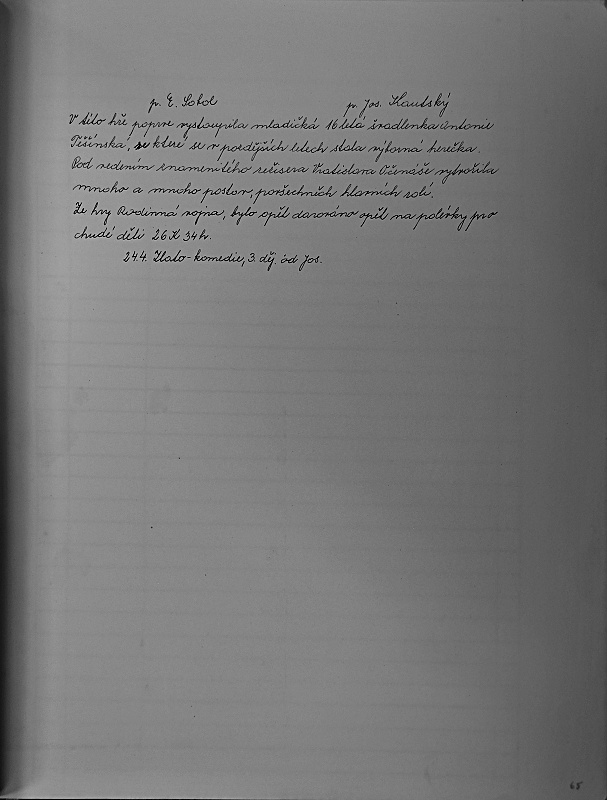 p. E. Sobol p. Jos. Kautský
V této hře poprve vystoupila mladičká 16 letá švadlenka Antonie
Těšínská, ze které se v pozdějších letech stala výborná herečka.
Pod vedením znamenitého režisera Vratislava Očenáše vytvořila
mnoho a mnoho postav, povšechních hlavních rolí.
Ze hry Rodinná vojna, bylo opět darováno opět na polévky pro
chudé děti 26 K 34 h.
24.4. Zlato - komedie, 3. děj. od Jos.
65